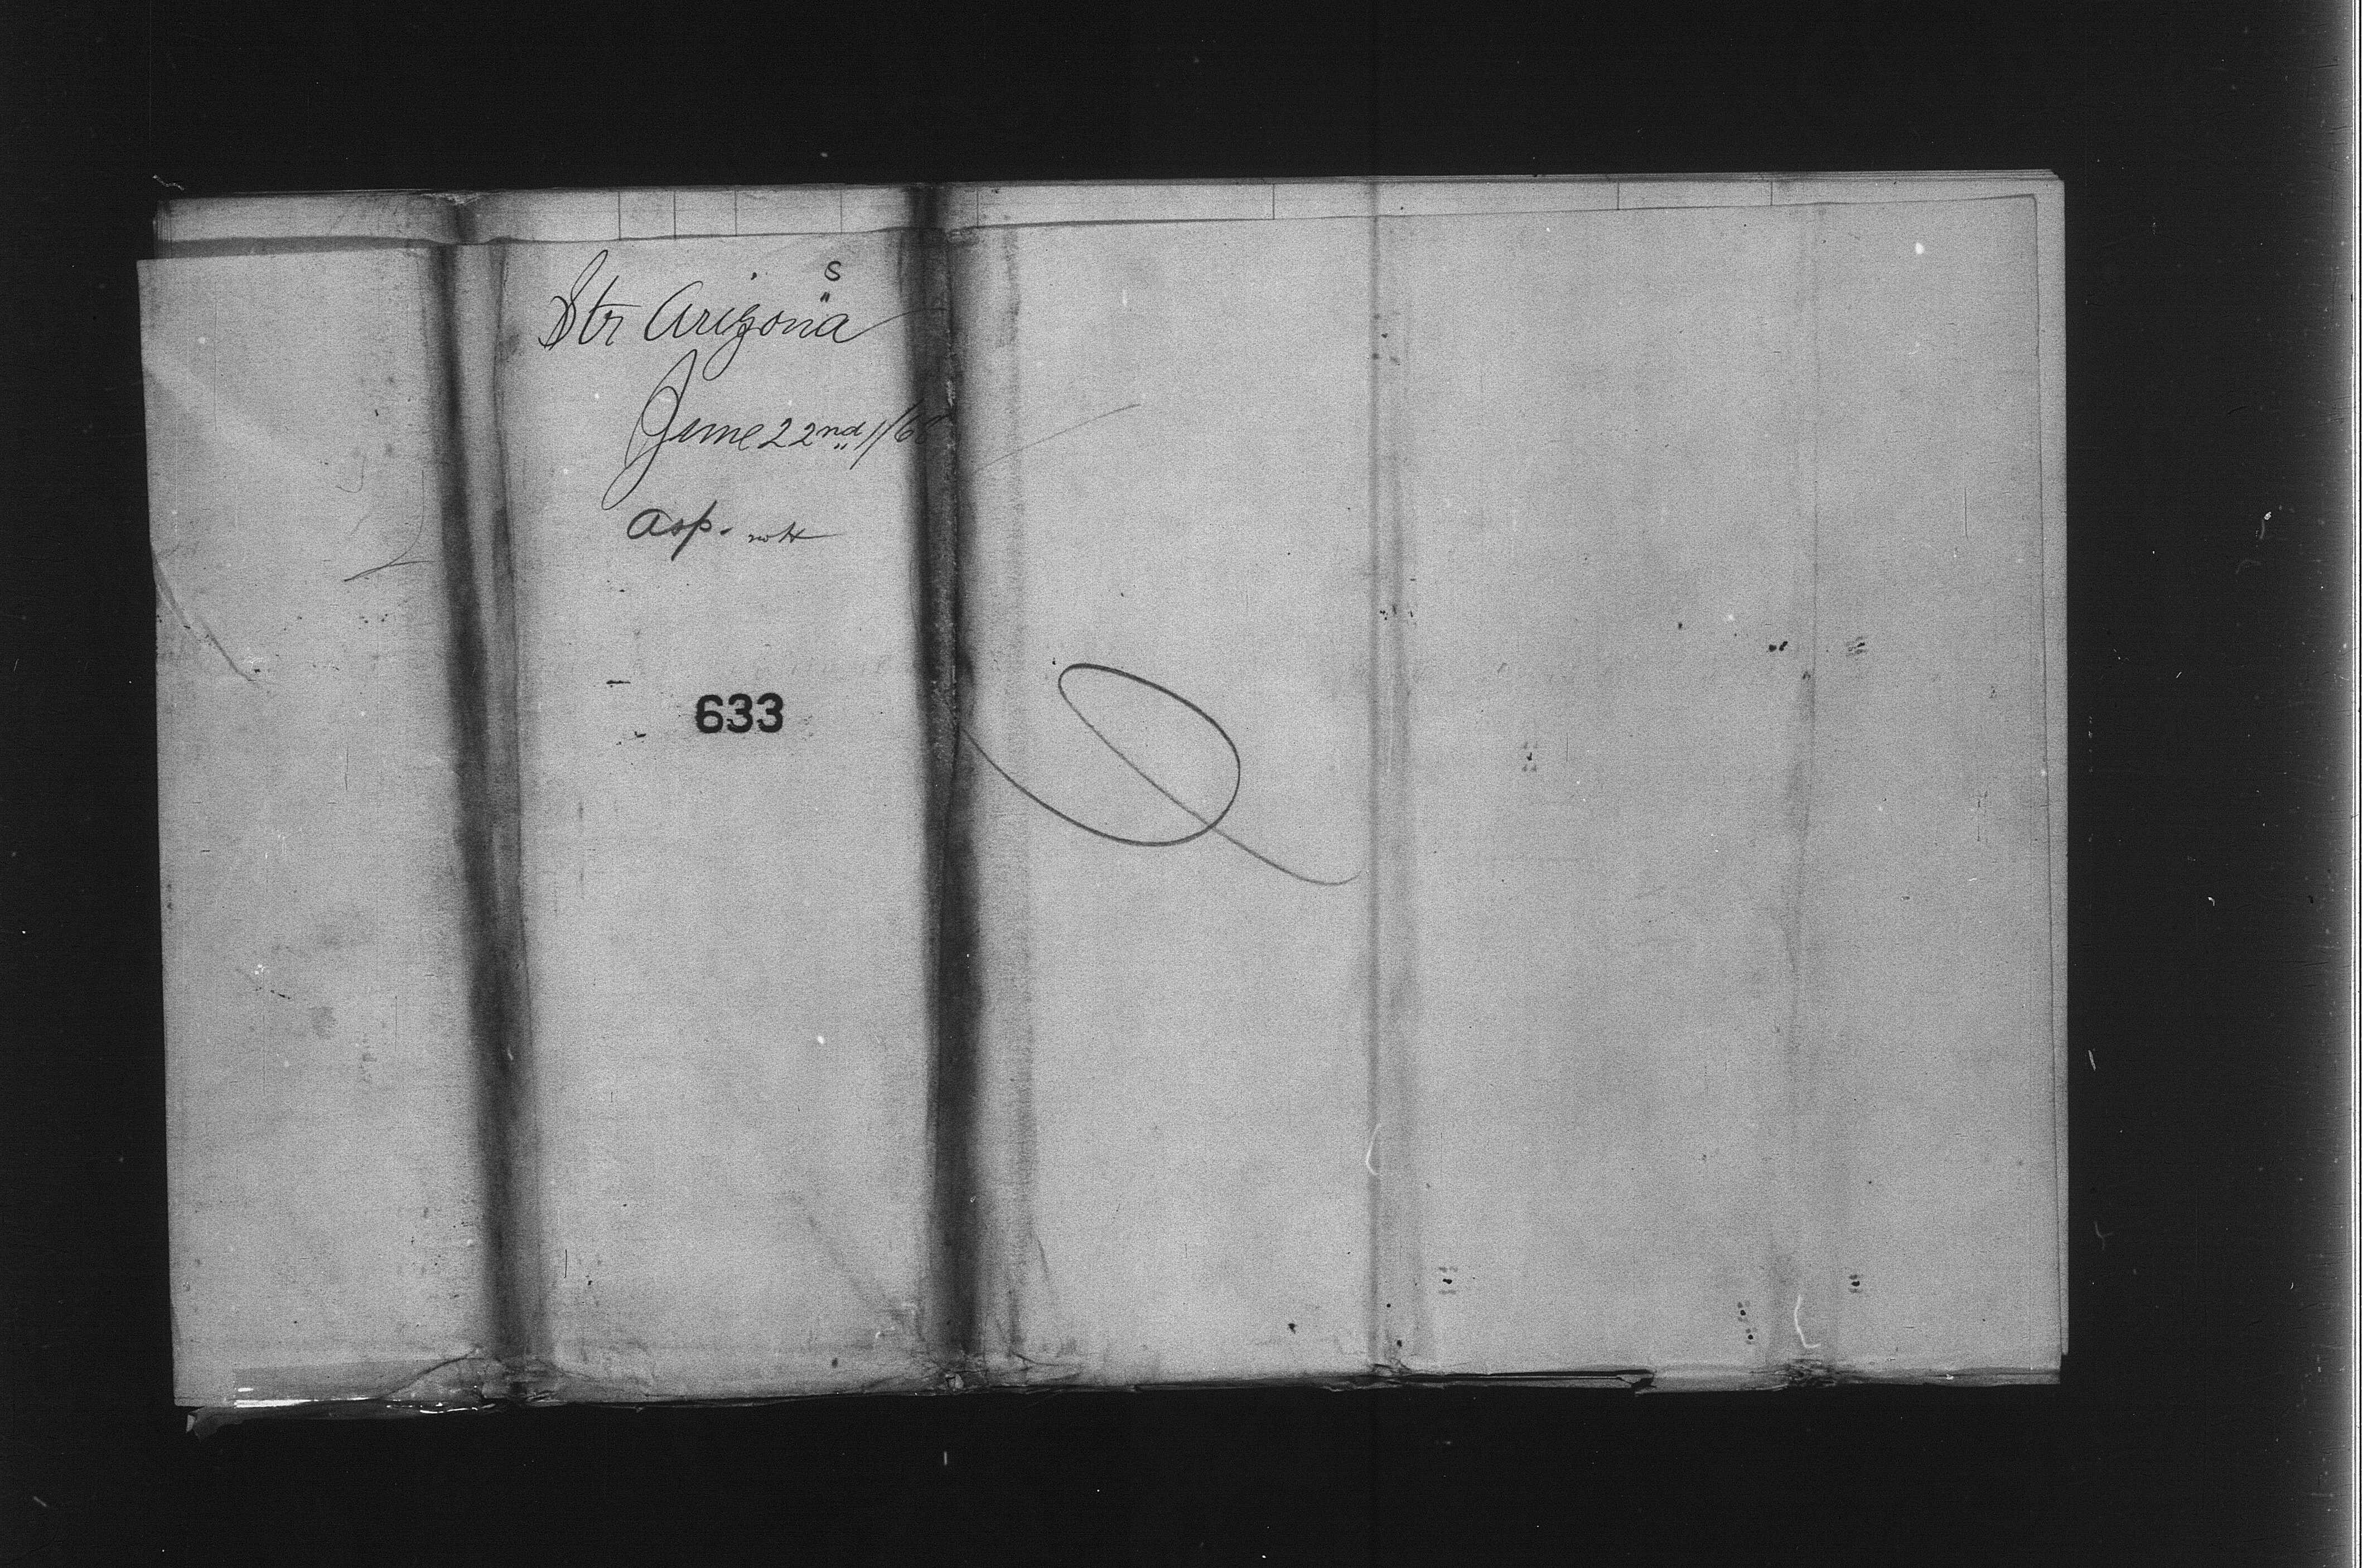 S
Str Arizona
June 22nd /60
Asp.
633